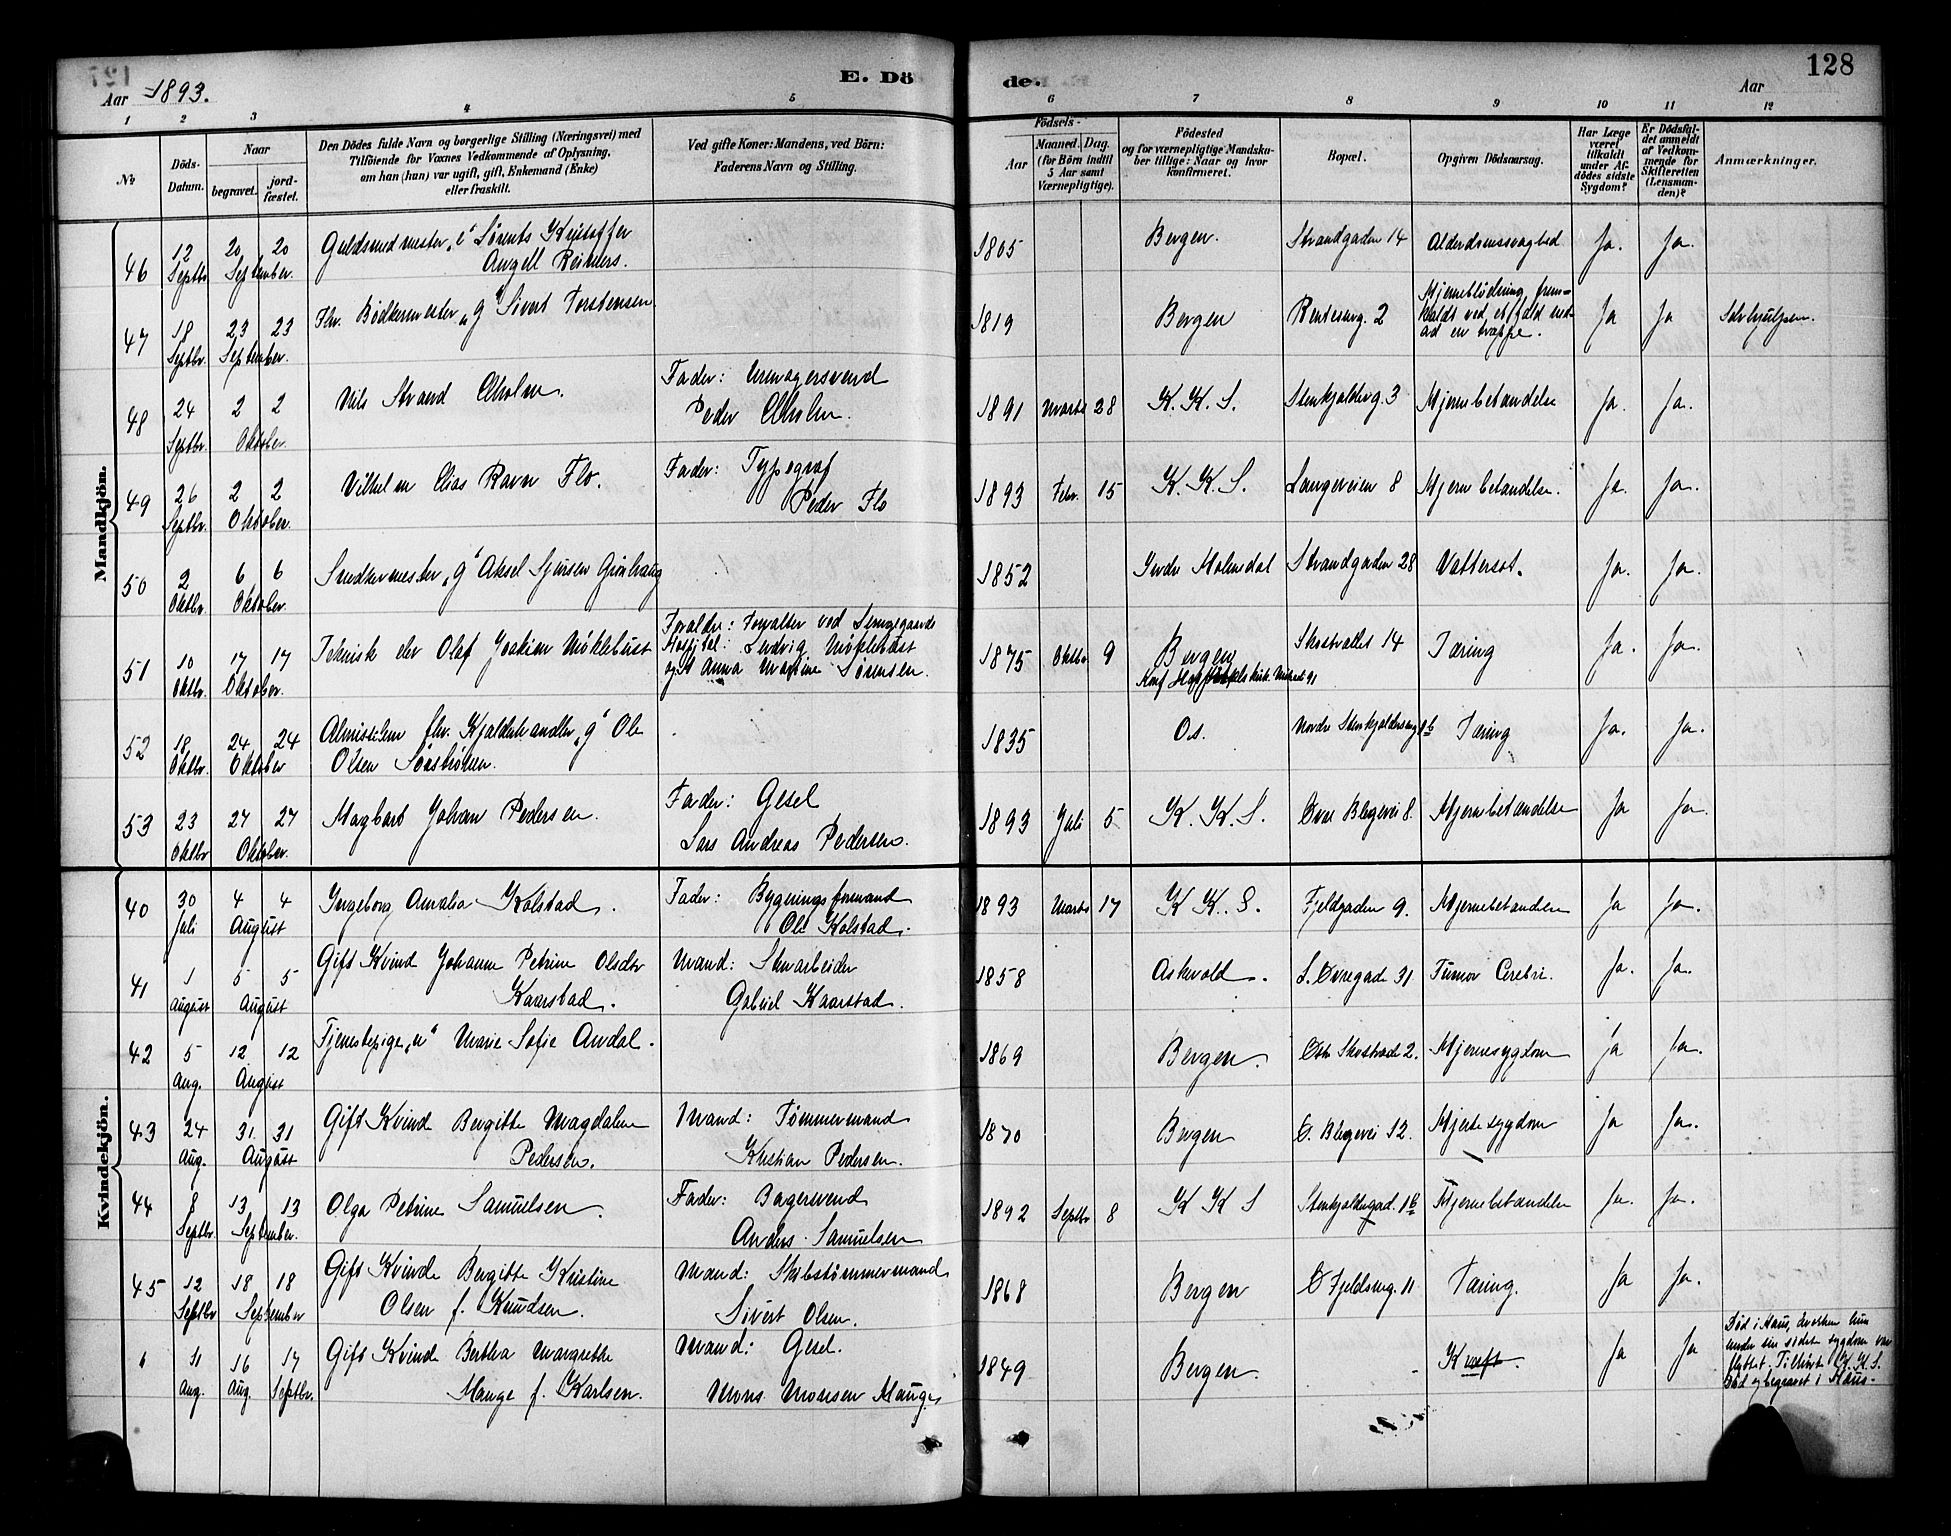 128
E. Dö de.
Aar 1893.
Aar
1 2 3 4 5 6 7 8 9 10 11 12
No
Döds-Datum.
Naar
begravet.
jord-fæstet.
Den Dödes fulde Navn og borgerlige Stilling (Næringsvei) med
Tilföiende for Voxnes Vedkommende af Oplysning,
om han (hun) var ugift, gift, Enkemand (Enke)
eller fraskilt.
Ved gifte Koner: Mandens, ved Börn:
Faderens Navn og Stilling.
Födsels-
Aar
Maaned. Dag.
(for Börn indtil
5 Aar samt
Værnepligtige).
Födested
og for værnepligtige Mandska-
ber tillige: Naar og hvor
konfirmeret.
Bopæl.
Opgiven Dödsaarsag.
Har Læge
været
tilkaldt
under Af-
dödes sidste
Sygdom?
Er Dödsfal-
det anmeldt
af Vedkom-
mende for
Skifteretten
(Lensman-
den)?
Anmærkninger.
Mandkjön.
46 12 Septbr 20 20 September. Guldsmedmester „e“ Sørents Kristoffer
Angell Reimers. 1805 Bergen. Strandgaden 14 Alderdomssvaghed Ja. Ja.
47 18 Septbr. 23 23 September. Fhv. Bødkermester „g“ Sivert Torstensen. 1819 Bergen 2 Hjerneblødning frem-
kaldt ved et fald ned
ad en trappe. Ja Ja Selvhjulpen.
48 24 Septbr. 2 2 Oktober. Nils Strand Alholm. Fader: Urmagersvend
Peder Alholm. 1891 Marts 28 K. K. S. Stenkjelderg. 3 Hjernebetændelse Ja. Ja.
49 26 Septbr. 2 2 Oktober. Vilhelm Elias Ravn Flo. Fader: Typograf
Peder Flo 1893 Febr. 15 K. K. S. Langeveien 8 Hjernebetændelse. Ja. Ja.
50 2 Oktbr. 6 6 Oktober. Snedkermester „g“ Aksel Sjursen Grønhaug 1852 Indre Holmedal Strandgaden 28 Vattersot. Ja. Ja.
51 10 Oktbr. 17 17 Oktober. Teknisk elev Olaf Joakim Møklebust Forældre: Forvalter ved Lungegaards
Hospital: Ludvig Møklebust
og Anna Martine Sørensen. 1875 Oktbr 9 Bergen
Konf. 91 Skostrædet 14 Tæring Ja. Ja.
52 18 Oktbr. 24 24 Oktober Almisselem fhv. „g“ Ole
Olsen 1835 Os. Nordre Tæring Ja. Ja.
53 23 Oktbr 27 27 Oktober. Magbart Johan Pedersen. Fader: Gesel
Lars Andreas Pedersen. 1893 Juli 5 K. K. S. Øvre Blegevei 8. Hjernebetændelse Ja Ja.
Kvindekjön.
40 30 Juli 4 4 August Ingeborg Amalia Kolstad. Fader: Bygningsformand
Ole Kolstad. 1893 Marts 17 K K. S. Fjeldgaden 9. Hjernebetændelse Ja Ja.
41 1 August 5 5 August Gift Kvinde Johanne Petrine Olsdtr
Kaarstad. Mand: Stenarbeider
Gabriel Kaarstad. 1858 Askvold. L. Øvregade 31 Tumor Cerebri. Ja. Ja.
42 5 Aug. 12 12 August Tjenestepige „u“ Marie Sofie Arvdal. 1869 Bergen. 2. Hjernesygdom Ja Ja.
43 24 Aug. 31. 31 August Gift Kvinde Bergitte Magdalene
Pedersen. Mand: Tømmermand
Kristian Pedersen. 1870 Bergen Ø. Blegevei 12. Hjertesygdom Ja Ja.
44 8 Septbr. 13 13 September. Olga Petrine Samuelsen. Fader: Bagersvend
Anders Samuelsen 1892 Septbr 8 K K S Stenkjeldergad. 1b Hjernebetændelse Ja. Ja.
45 12 Septbr 18 18 September Gift Kvinde Bergitte Kristine
Olsen f. Knudsen. Mand: Skibstømmermand
Sivert Olsen. 1868 Bergen Ø Fjeldsmg. 11 Tæring. Ja Ja.
11 Aug. 16 Aug. 17 Septbr. Gift Kvinde Bertha Margrethe
Mange f. Karlsen. Mand: Gesel.
Mons Monsen Mange 1849 Bergen. Kræft. Ja Ja Død i Haus, hvorhen hun
under sin sidste sygdom var
flyttet. Tilhørte K. K. S.
Død og begravet i Haus.